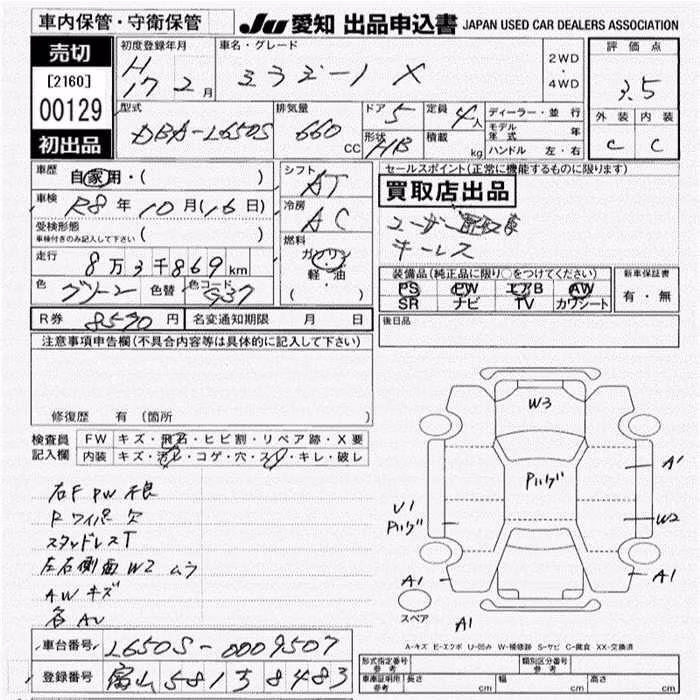 車内保管・守衛保管
JU 愛知 出品申込書 JAPAN USED CAR DEALERS ASSOCIATION
売切
[2160]
00129
初出品
初度登録年月
H 17 2月
車名・グレード
ミラジーノ X
2WD
・
4WD
評価点
3.5
外装 内装
C C
型式
DBA-L650S
排気量
660 CC
ドア 5
形状 HB
定員 4人
積載 kg
ディーラー・並行
モデル年式 年
ハンドル 左・右
車歴 自家用・( )
車検 R8年10月(16日)
受検形態
車検付きのみ記入して下さい ( )
走行 8万3千869km
色 グリーン 色替 色コード G37
シフト
AT
冷房
AC
燃料
ガソリン
軽・油
( )
セールスポイント(正常に機能するものに限ります)
買取店出品
ユーザー買取車
キーレス
装備品(純正品に限り○をつけてください)
PS PW エアB AW
SR ナビ TV カワシート
新車保証書
有・無
R券 8590円 名変通知期限 月 日
後日品
注意事項申告欄(不具合内容等は具体的に記入して下さい)
修復歴 有(箇所 )
検査員
記入欄
FW キズ・飛石・ヒビ割・リペア跡・X要
内装 キズ・汚レ・コゲ・穴・スレ・キレ・破レ
右F PW 不良
Rワイパー欠
スタッドレスT
左右側面W2 ムラ
AWキズ
各AU
W3
Pハゲ
A1
U1
Pハゲ
W2
A1
A1
スペア
A1
A-キズ E-エクボ U-凹み W-補修跡 S-サビ C-腐食 XX-交換済
車台番号 L650S-0009507
登録番号 富山581 ら 8483
形式指定番号
参考
類別区分番号
参考
車庫証明用
参考
長さ cm
幅 cm
高さ cm